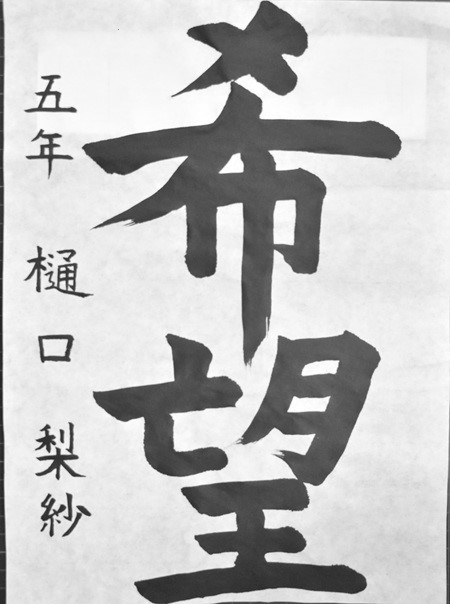 希望
五年 樋口 梨紗